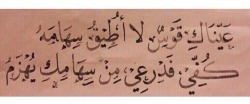 عَيْنَاكِ قَوْسٌ لا أُطِيْقُ سِهَامَهُ
كُفِّي فَدِرْعِي مِنْ سِهَامِكِ يُهْزَمُ